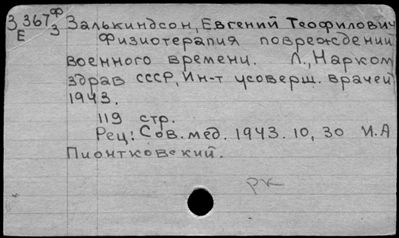 3 367 Ф/3 Залькиндсон, Евгений Теофилович
Е Физиотерапия повреждений
военного времени. Л., Нарком
здрав СССР, Ин-т усоверш. врачей
1943.
119 стр.
Рец: Сов. мед. 1943. 10, 30 И.А
Пионтковский.
РК